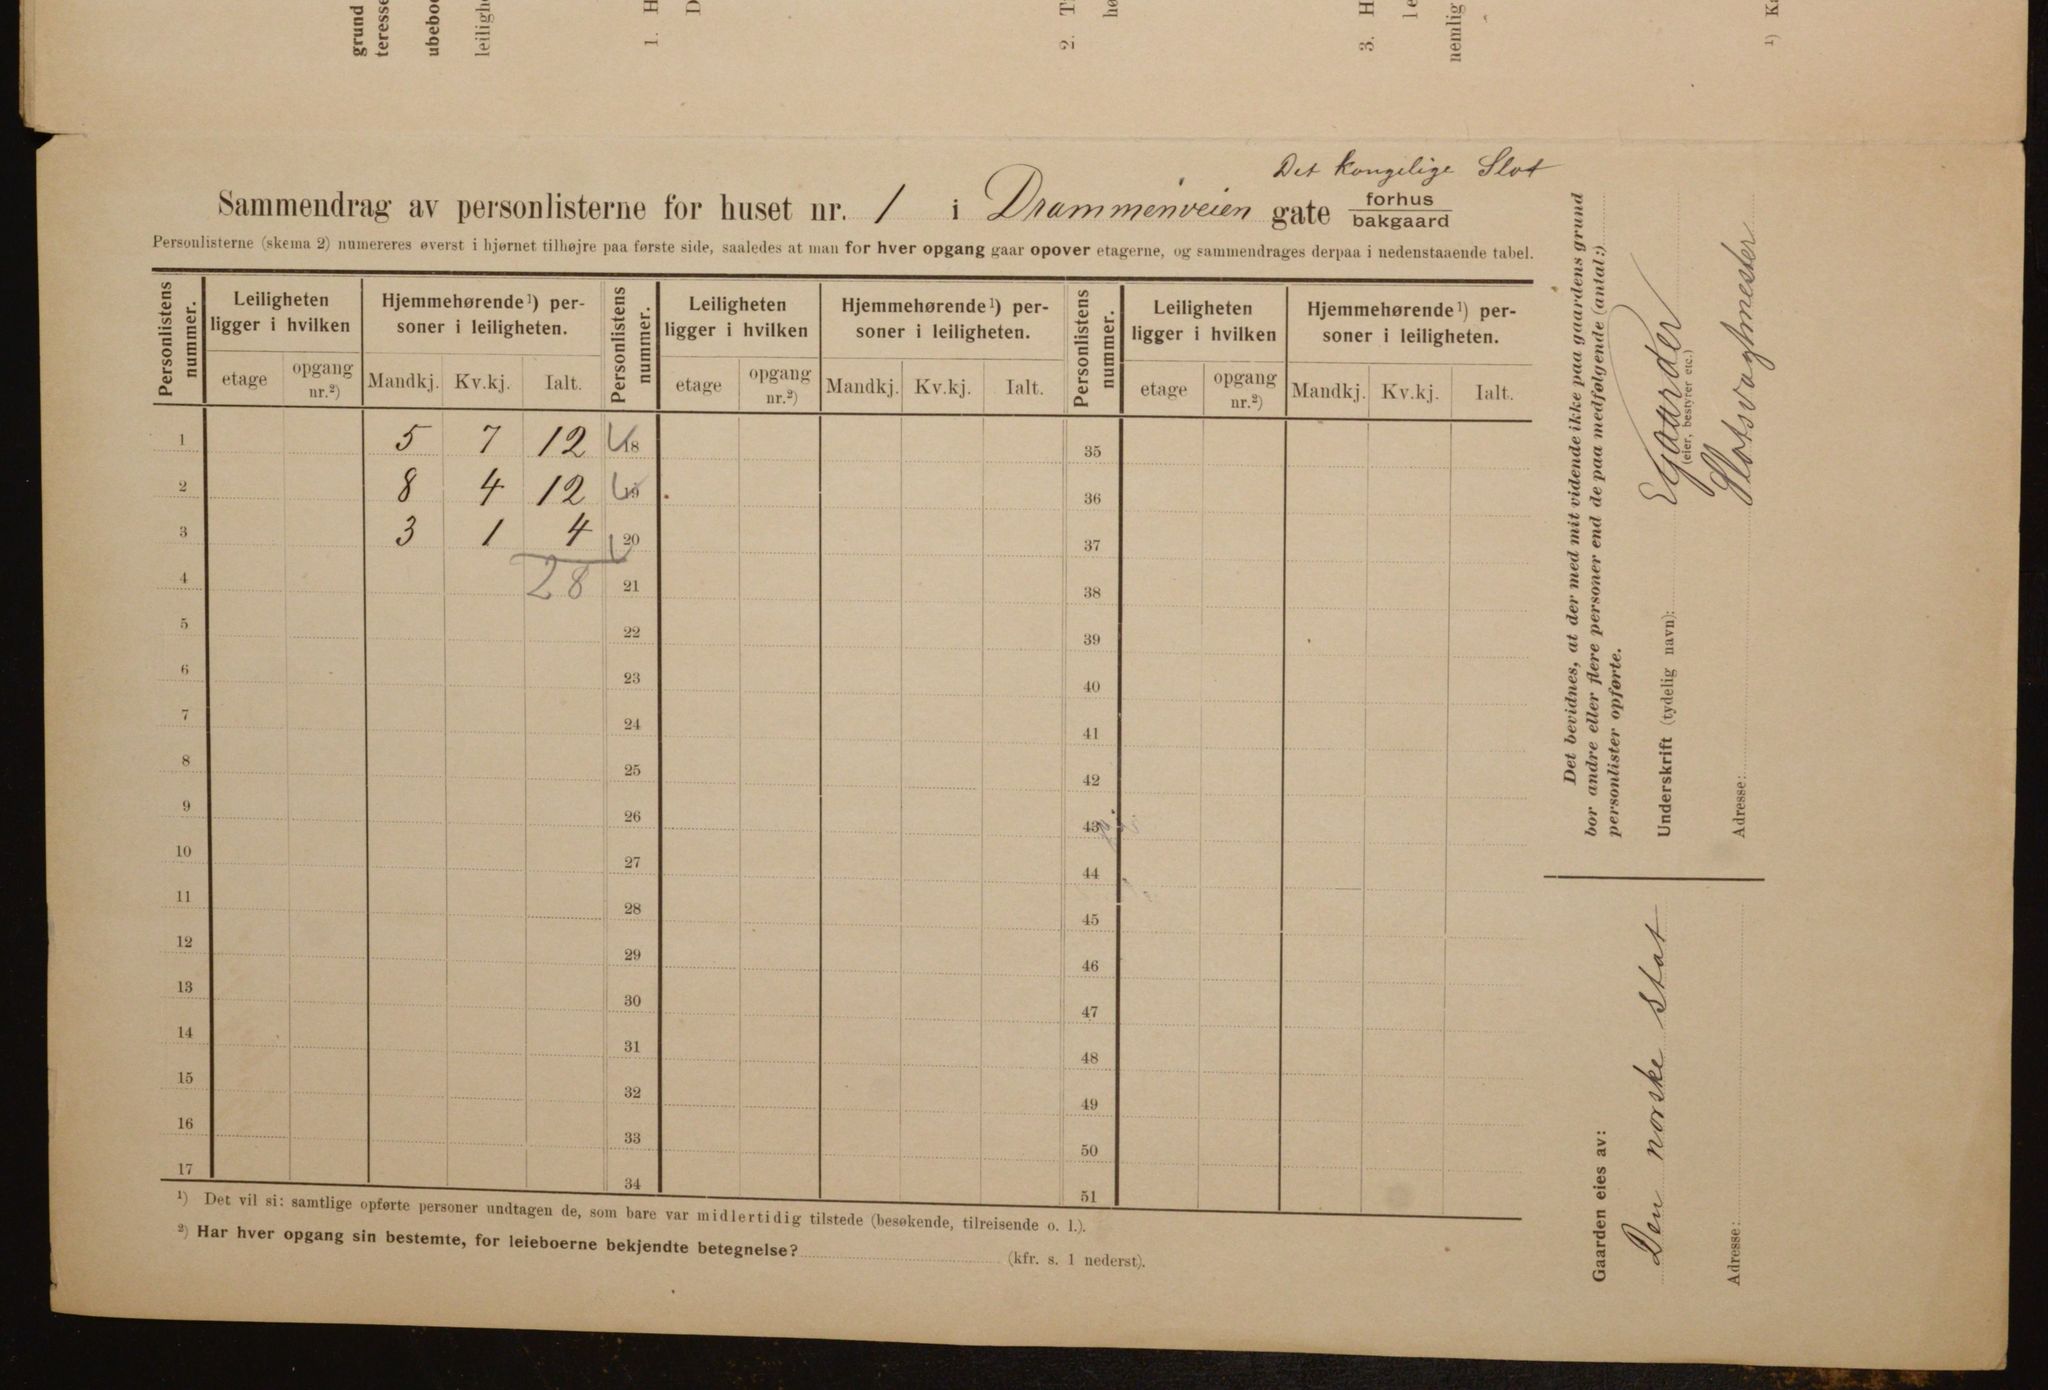 grund
teresse
ubeboe
leilighe
1. H
D
2. T
hø
3. H
le
nemlig
¹) Ka
Det kongelige Slot
Sammendrag av personlisterne for huset nr. 1 i Drammenveien gate forhus
bakgaard
Personlisterne (skema 2) numereres øverst i hjørnet tilhøjre paa første side, saaledes at man for hver opgang gaar opover etagerne, og sammendrages derpaa i nedenstaaende tabel.
Personlistens nummer. Leiligheten ligger i hvilken Hjemmehørende¹) per-soner i leiligheten. Personlistens nummer. Leiligheten ligger i hvilken Hjemmehørende¹) per-soner i leiligheten. Personlistens nummer. Leiligheten ligger i hvilken Hjemmehørende¹) per-soner i leiligheten.
etage opgang nr.²) Mandkj. Kv.kj. Ialt. etage opgang nr.²) Mandkj. Kv.kj. Ialt. etage opgang nr.²) Mandkj. Kv.kj. Ialt.
1 5 7 12 18 35
2 8 4 12 19 36
3 3 1 4 20 37
4 28 21 38
5 22 39
6 23 40
7 24 41
8 25 42
9 26 43
10 27 44
11 28 45
12 29 46
13 30 47
14 31 48
15 32 49
16 33 50
17 34 51
¹) Det vil si: samtlige opførte personer undtagen de, som bare var midlertidig tilstede (besøkende, tilreisende o. l.).
²) Har hver opgang sin bestemte, for leieboerne bekjendte betegnelse? (kfr. s. 1 nederst).
Det bevidnes, at der med mit vidende ikke paa gaardens grund
bor andre eller flere personer end de paa medfølgende (antal:)
personlister opførte.
Underskrift (tydelig navn):
(eier, bestyrer etc.)
Adresse: Slotsvagtmester
Gaarden eies av:
Den norske stat
Adresse: